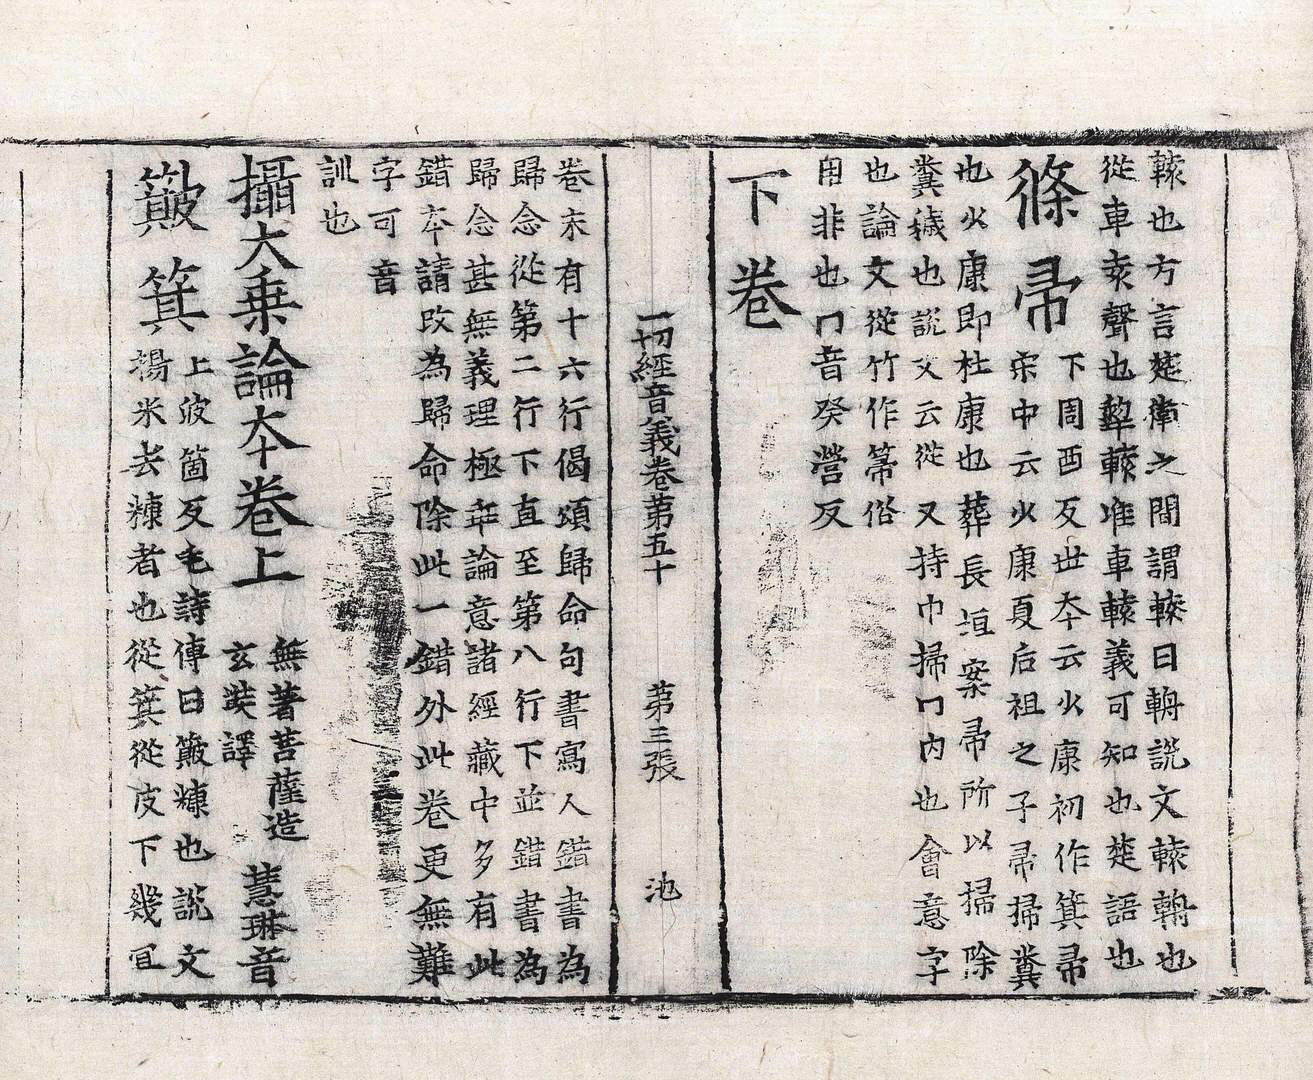 轅也方言楚衛之間謂轅曰輈說文轅輈也
從車袁聲也犂轅准車轅義可知也楚語也
條帚
下周酉反世本云少康初作箕帚
宋中云少康夏后祖之子帚掃糞
也少康即杜康也葬長垣案帚所以掃除
糞穢也說文云從又持巾掃冂內也會意字
也論文從竹作箒俗
用非也冂音癸營反
下卷
一切經音義卷第五十 第三張 池
卷末有十六行偈頌歸命句書寫人錯書為
歸念從第二行下直至第八行下並錯書為
歸念甚無義理極乖論意諸經藏中多有此
錯本請改為歸命除此一錯外此卷更無難
字可音
訓也
攝大乘論本卷上
無著菩薩造
玄奘譯
慧琳音
簸箕
上波箇反毛詩傳曰簸糠也說文
揚米去糠者也從箕從皮下幾宜